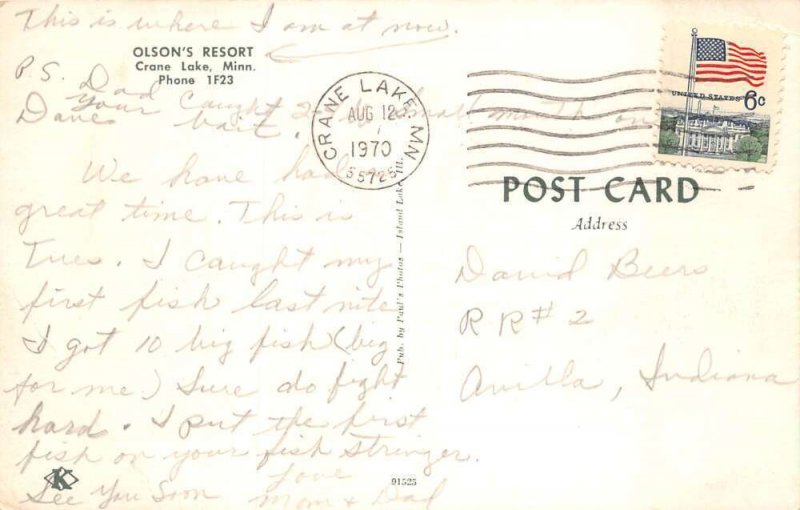 This is where I am at now.
OLSON'S RESORT
Crane Lake, Minn.
Phone 1F23
P.S. Dad caught 2 small mouth on
your
Daves bait.
CRANE LAKE, MN
AUG 12
1970
55725
UNITED STATES 6c
We have had
great time. This is
Tues. I caught my
first fish last nite
I got 10 big fish (big
for me) Sure do fight
hard. I put the first
fish on your fish stringer.
See You Soon Love
Mom & Dad
K
Pub. by Paul's Photos — Island Lake, Ill.
91523
POST CARD
Address
David Beers
RR#2
Avilla, Indiana